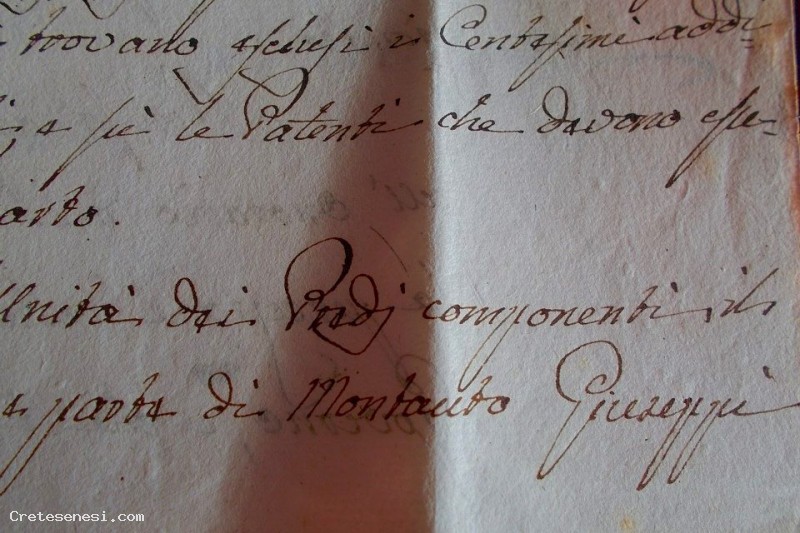 trovano esclusi i Centesimi addi-
e più le Patenti che devono esse-
arto.
Unità dei Predj componenti il
e parte di Montauto Giuseppi
Cretesenesi.com